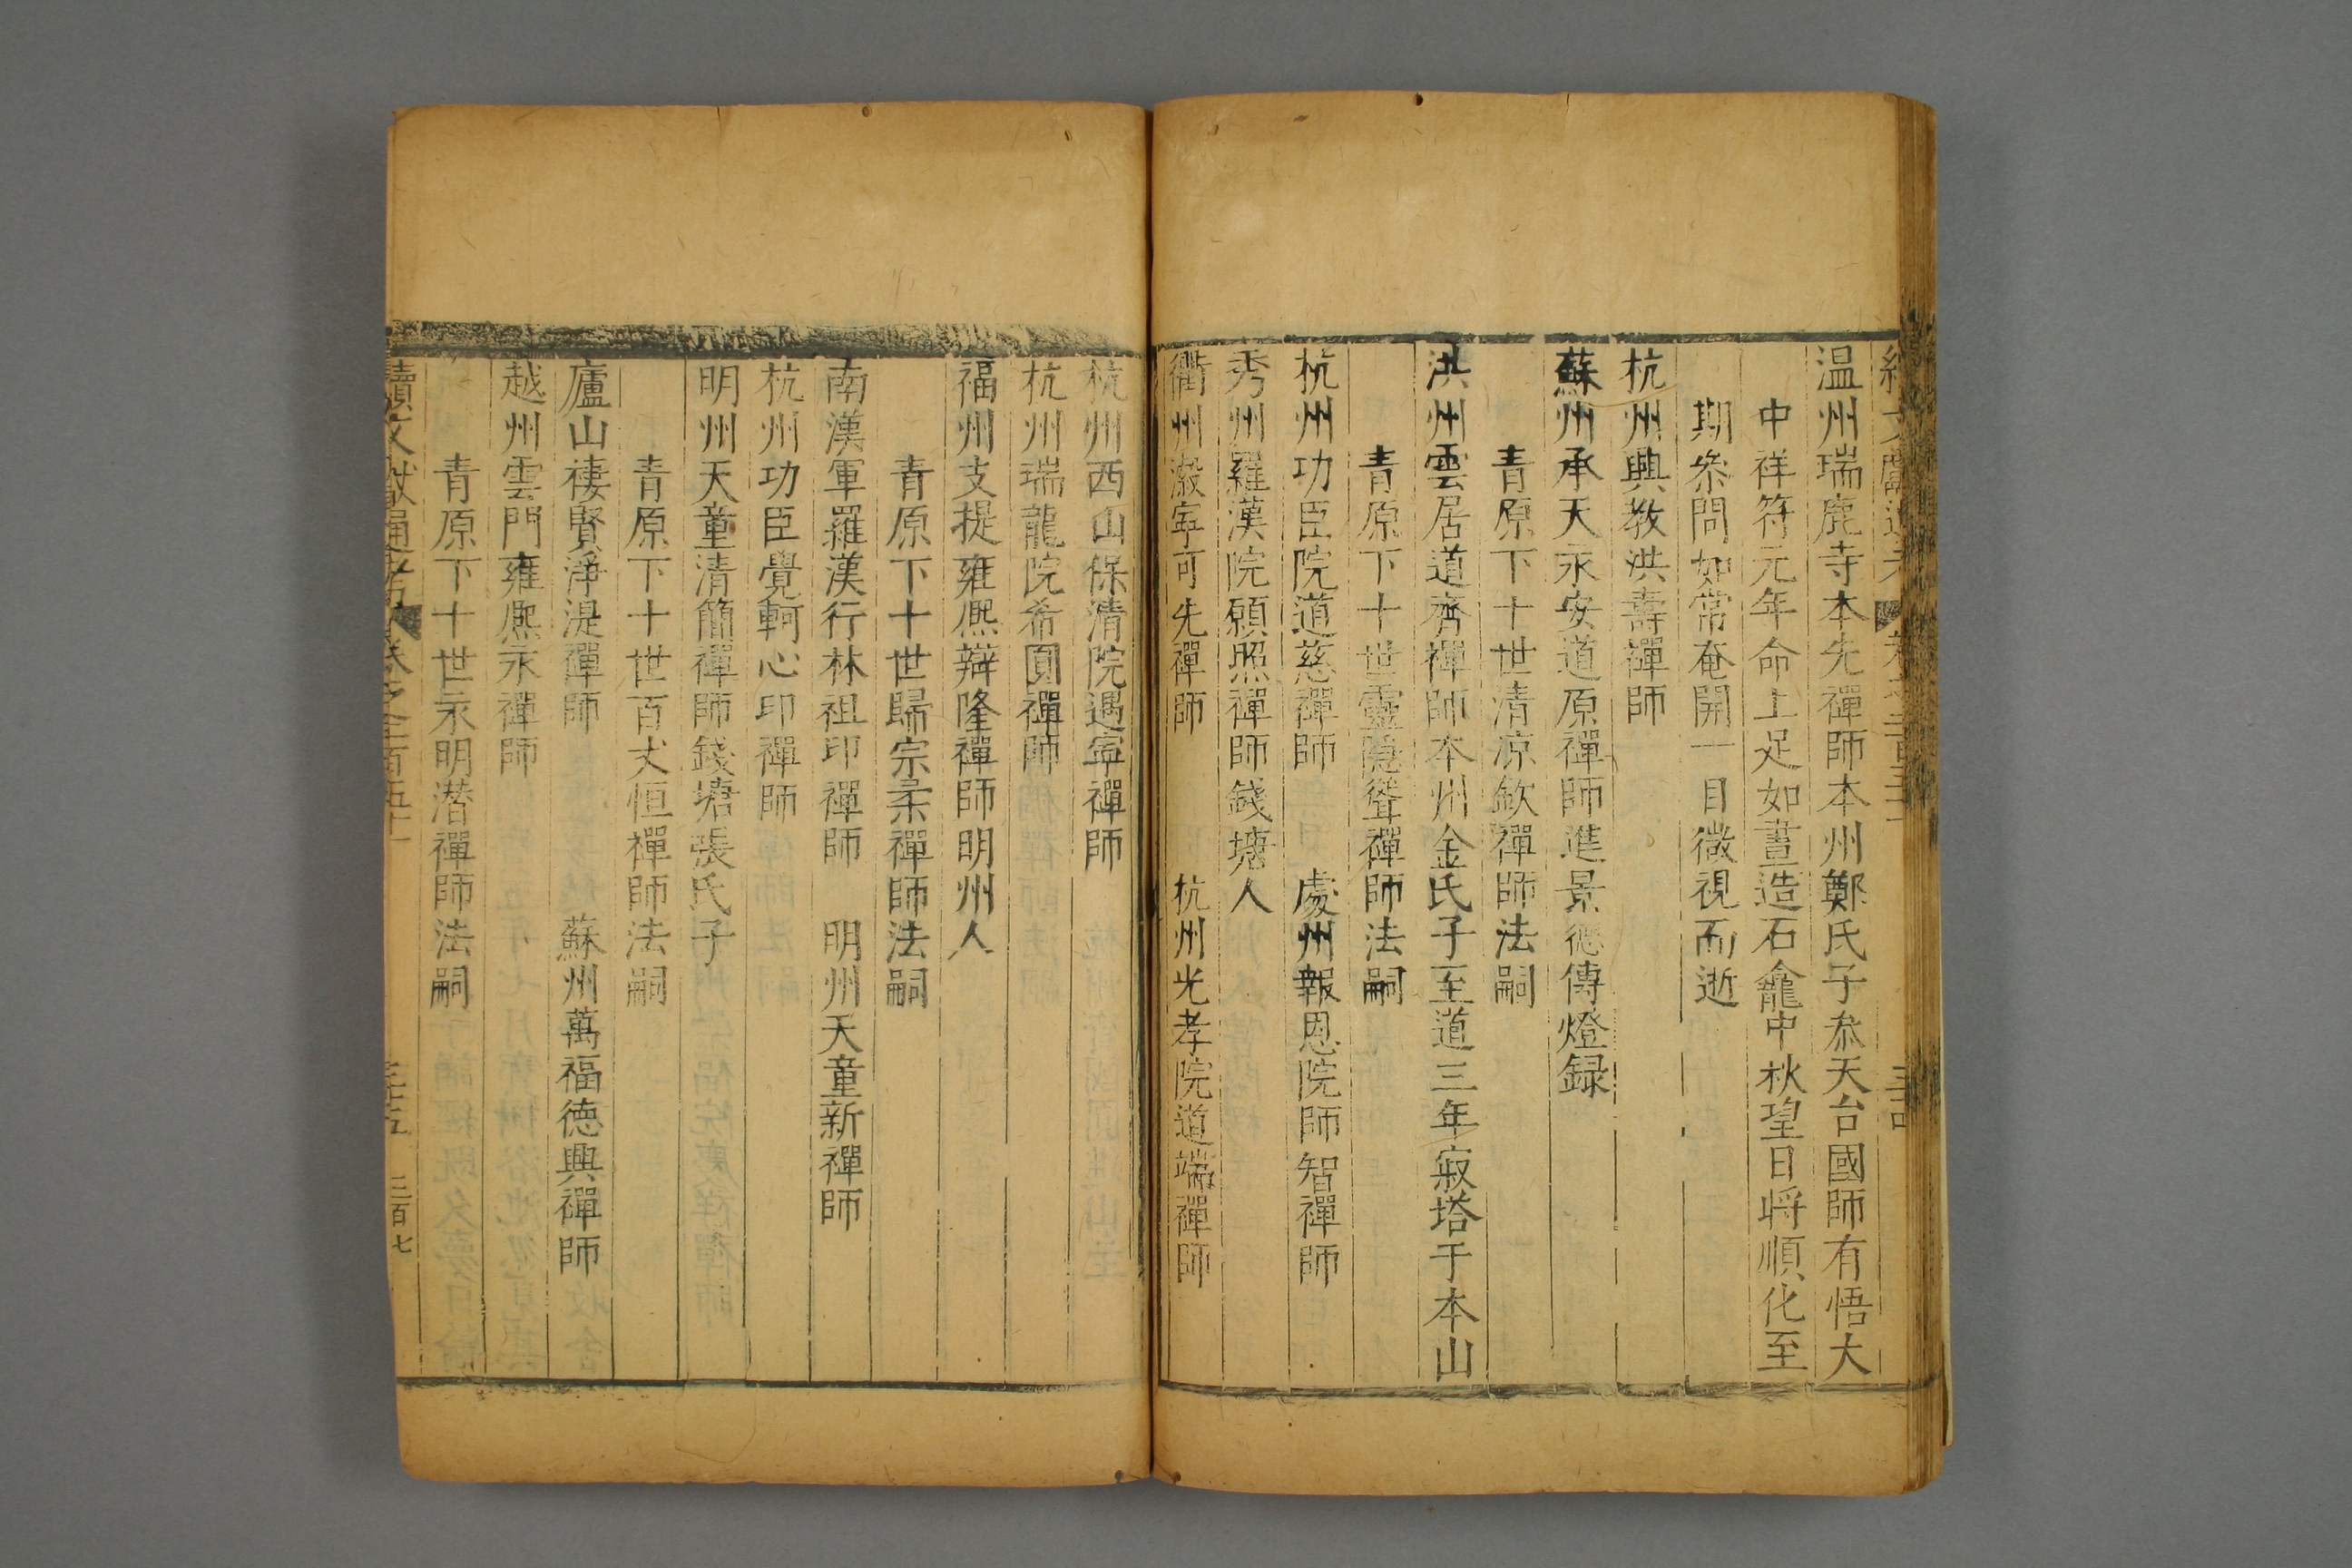 温州瑞鹿寺本先禪師本州鄭氏子叅天台國師有悟大
中祥符元年命上足如晝造石龕中秋望日将順化至
期叅問如常奄開一目微視而逝
杭州興教洪壽禪師
蘇州承天永安道原禪師進景德傳燈録
青原下十世清凉欽禪師法嗣
洪州雲居道齊禪師本州金氏子至道三年寂塔于本山
青原下十世靈隐聳禪師法嗣
杭州功臣院道慈禪師　處州報恩院師智禪師
秀州羅漢院願照禪師錢塘人
衢州瀫寧可先禪師　杭州光孝院道端禪師
杭州西山保清院遇寧禪師
杭州瑞龍院希圓禪師
福州支提雍熈辯隆禪師明州人
青原下十世歸宗柔禪師法嗣
南漢軍羅漢行林祖印禪師　明州天童新禪師
杭州功臣覺軻心印禪師
明州天童清簡禪師錢塘張氏子
青原下十世百丈恒禪師法嗣
廬山棲賢淨湜禪師　蘇州萬福德興禪師
越州雲門雍熈永禪師
青原下十世永明潜禪師法嗣
續文獻通考　卷之二百五十　三十五　三百七